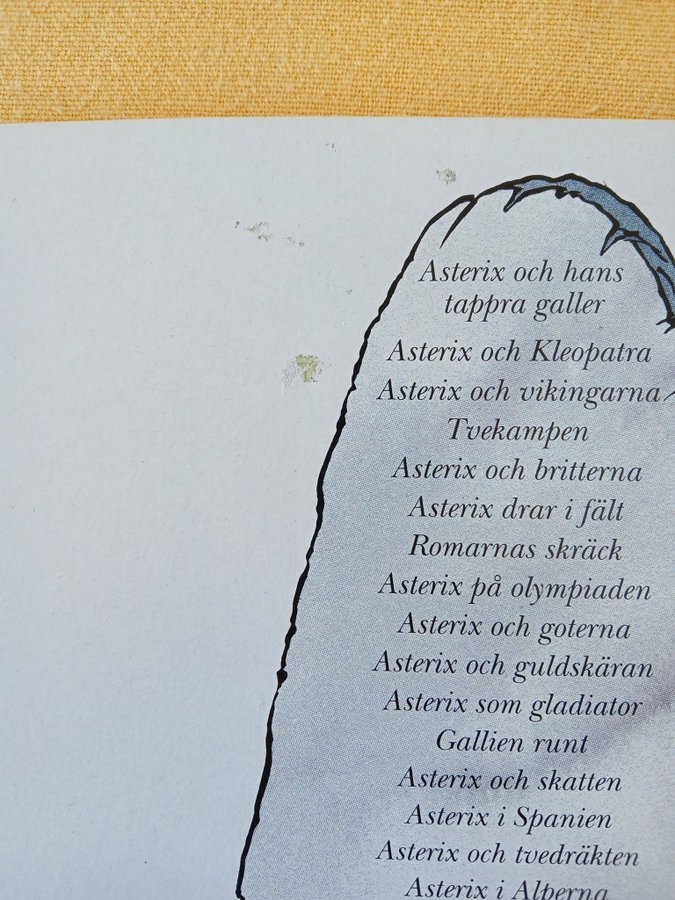 Asterix och hans
tappra galler
Asterix och Kleopatra
Asterix och vikingarna
Tvekampen
Asterix och britterna
Asterix drar i fält
Romarnas skräck
Asterix på olympiaden
Asterix och goterna
Asterix och guldskäran
Asterix som gladiator
Gallien runt
Asterix och skatten
Asterix i Spanien
Asterix och tvedräkten
Asterix i Alperna